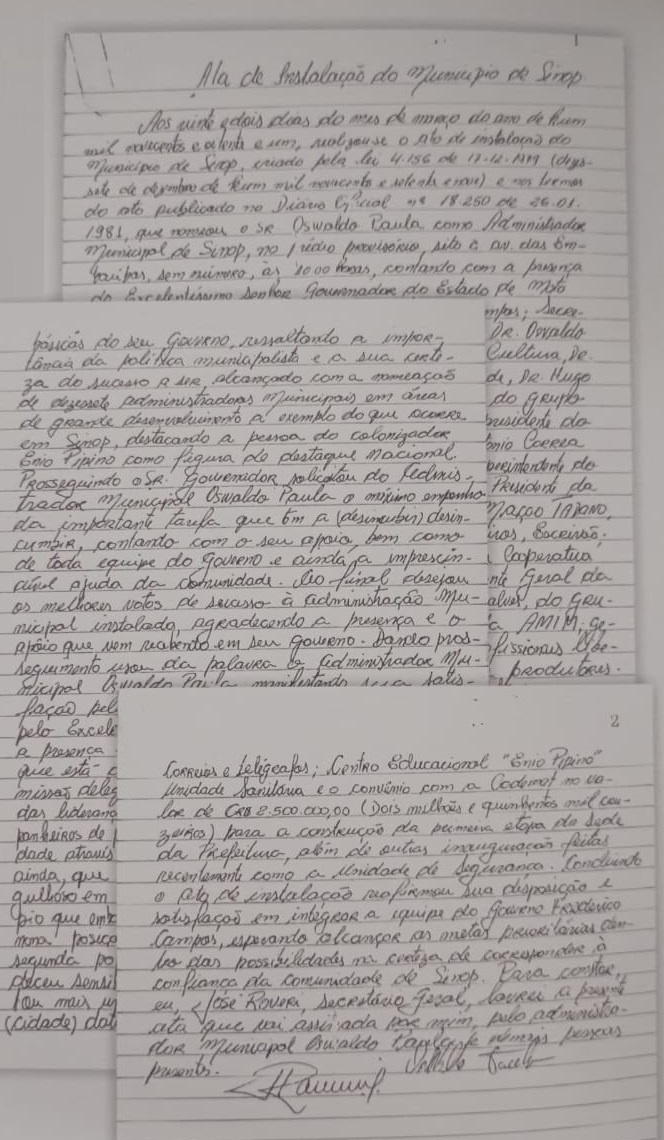 1
Ata de Instalação do Município de Sinop
Aos vinte e dois dias do mes de março do ano de hum
mil novecentos e oitenta e um, realizou-se o Ato de instalação do
Município de Sinop, criado pela lei 4.156 de 17.12.1979 (dezes-
sete de dezembro de hum mil novecentos e setenta e nove) e nos termos
do ato publicado no Diário Oficial nº 18.250 de 26.01.
1981, que nomeou o SR Oswaldo Paula como Administrador
Municipal de Sinop, no prédio provisório, sito à av. das Em-
baúbas, sem número, às 10:00 horas, contando com a presença
do Excelentíssimo senhor Governador do Estado de Mato
mpos; Secre-
DR. Osvaldo
Cultura, Dr.
de, Dr. Hugo
do grupo
presidente do
ônio Correa
perintendente do
Presidente da
Maçao TABANO,
iros, Exceirão;
Cooperativa
nte Geral da
alves, do gru-
a AMIM, ge-
fissionais libe-
produtores.
básicas do seu Governo, ressaltando a impor-
tância da política municipalista e a sua certe-
za do sucesso a ser alcançado com a nomeação
de dezessete administradores municipais em áreas
de grande desenvolvimento a exemplo do que ocorre
em Sinop, destacando a pessoa do colonizador
Enio Pipino como figura de destaque nacional.
Prosseguindo o SR. Governador solicitou do Adminis-
trador Municipal Oswaldo Paula o máximo empenho
da importante tarefa que tem a (desincubir) desin-
cumbir, contando com o seu apoio, bem como
de toda equipe do Governo e ainda a imprescin-
dível ajuda da comunidade. Ao final desejou
os melhores votos de sucesso à administração Mu-
nicipal instalada, agradecendo a presença e o
apoio que vem recebendo em seu governo. Dando pros-
seguimento usou da palavra o Administrador Mu-
nicipal Oswaldo Paula manifestando sua satis-
fação pel
pelo Excele
a presença
que está
missão deleg
das lideranç
panheiros de
dade atravis
ainda, que
gulhoso em
pio que emb
mona posiçã
segunda po
deceu sensi
tou mais u
(cidade) dat
2
Correios e Telégrafos; Centro Educacional "Enio Pipino"
Unidade Sanitária e o convênio com a Codemat no va-
lor de CR$ 2.500.000,00 (Dois milhões e quinhentos mil cru-
zeiros) para a construção da primeira etapa da sede
da Prefeitura, além de outras inauguração feitas
recentemente como a Unidade de Segurança. Concluindo
o Ato de instalação reafirmou sua disposição e
satisfação em integrar a equipe do Governo Frederico
Campos, esperando alcançar as metas prioritárias den-
tro das possibilidades na certeza de corresponder à
confiança da comunidade de Sinop. Para constar,
eu, José Roveri, secretário Geral, lavrei a presente
ata que vai assinada por mim, pelo administra-
dor Municipal Oswaldo Paula e demais pessoas
presentes.